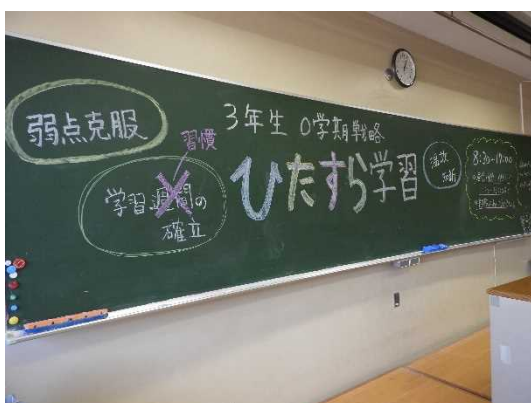 弱点克服
習慣
学習週間の
確立
3年生 0学期戦略
ひたすら学習
8:20-17:00